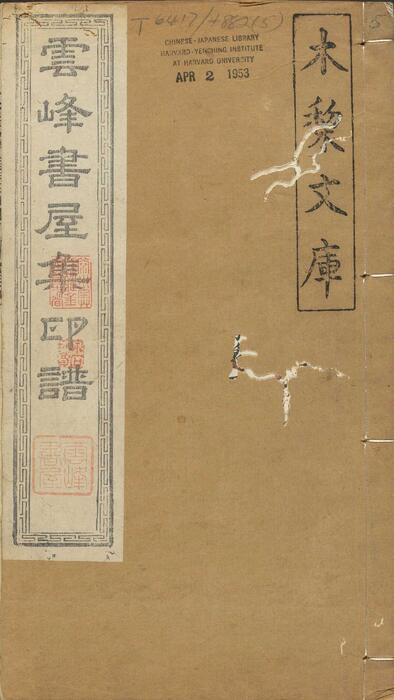 T 6417/4862(5)
CHINESE-JAPANESE LIBRARY
HARVARD-YENCHING INSTITUTE
AT HARVARD UNIVERSITY
APR 2 1953
5
木犂文庫
雲峰書屋集印譜
雲峰書屋